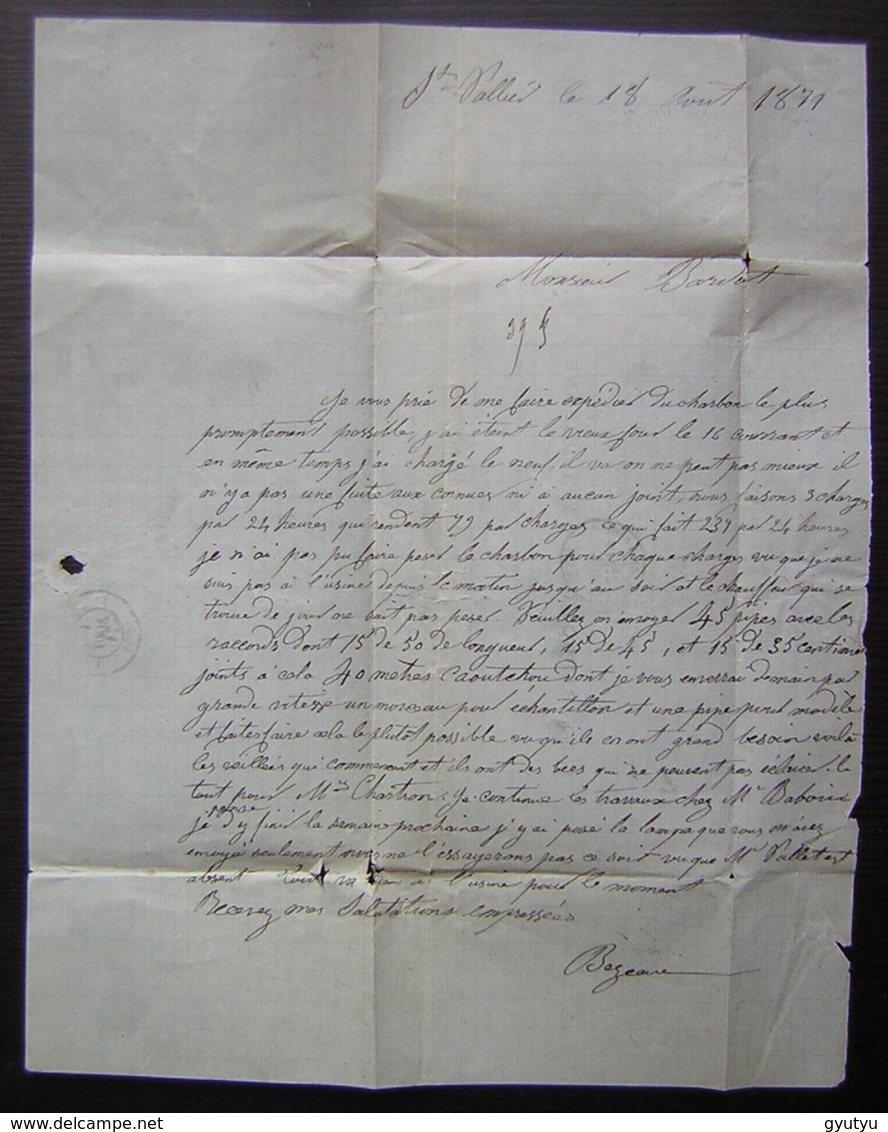 St Vallier le 18 Aout 1871
Monsieur
Je vous prie de me faire expédier du charbon le plus
promptement possible, j'ai éteint le vieux four le 16 courrant et
en même temps j'ai chargé le neuf il va on ne peut pas mieux il
n'y a pas une fuite aux cornues ni à aucun joint, nous faisons 3 charges
par 24 heures qui rendent 79 par charges ce qui fait 237 par 24 heures
je n'ai pas pu faire peser le charbon pour chaque charges vu que je ne
suis pas à l'usine depuis le matin jusqu'au soir et le chauffeur qui se
trouve de jour ne sait pas peser. Veuillez en envoyer 45 pipes avec les
raccords dont 15 de 50 de longueur, 15 de 45, et 15 de 35 centime
joints à cela 40 metres caoutchou dont je vous enverrai demain par
grande vitesse un morceau pour échantillon et une pipe pour modèle
et faites faire cela le plutôt possible vu qu'ils en ont grand besoin voilà
les veillées qui commencent et ils ont des becs qui ne peuvent pas éclairé. le
tout pour Mrs Chartron. Je continue les travaux chez Mr
pense
je d'y finir la semaine prochaine j'y ai posé la lampe que vous m'avez
envoyé seulement nous ne l'essayerons pas ce soir vu que Mr Vallet est
absent tout va bien à l'usine pour le moment
Recevez mes Salutations empressées
gyutyu
www.delcampe.net